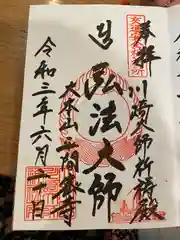 奉拝
川崎大師祈祷殿
弘法大師
大本山平間教寺
令和三年六月
日